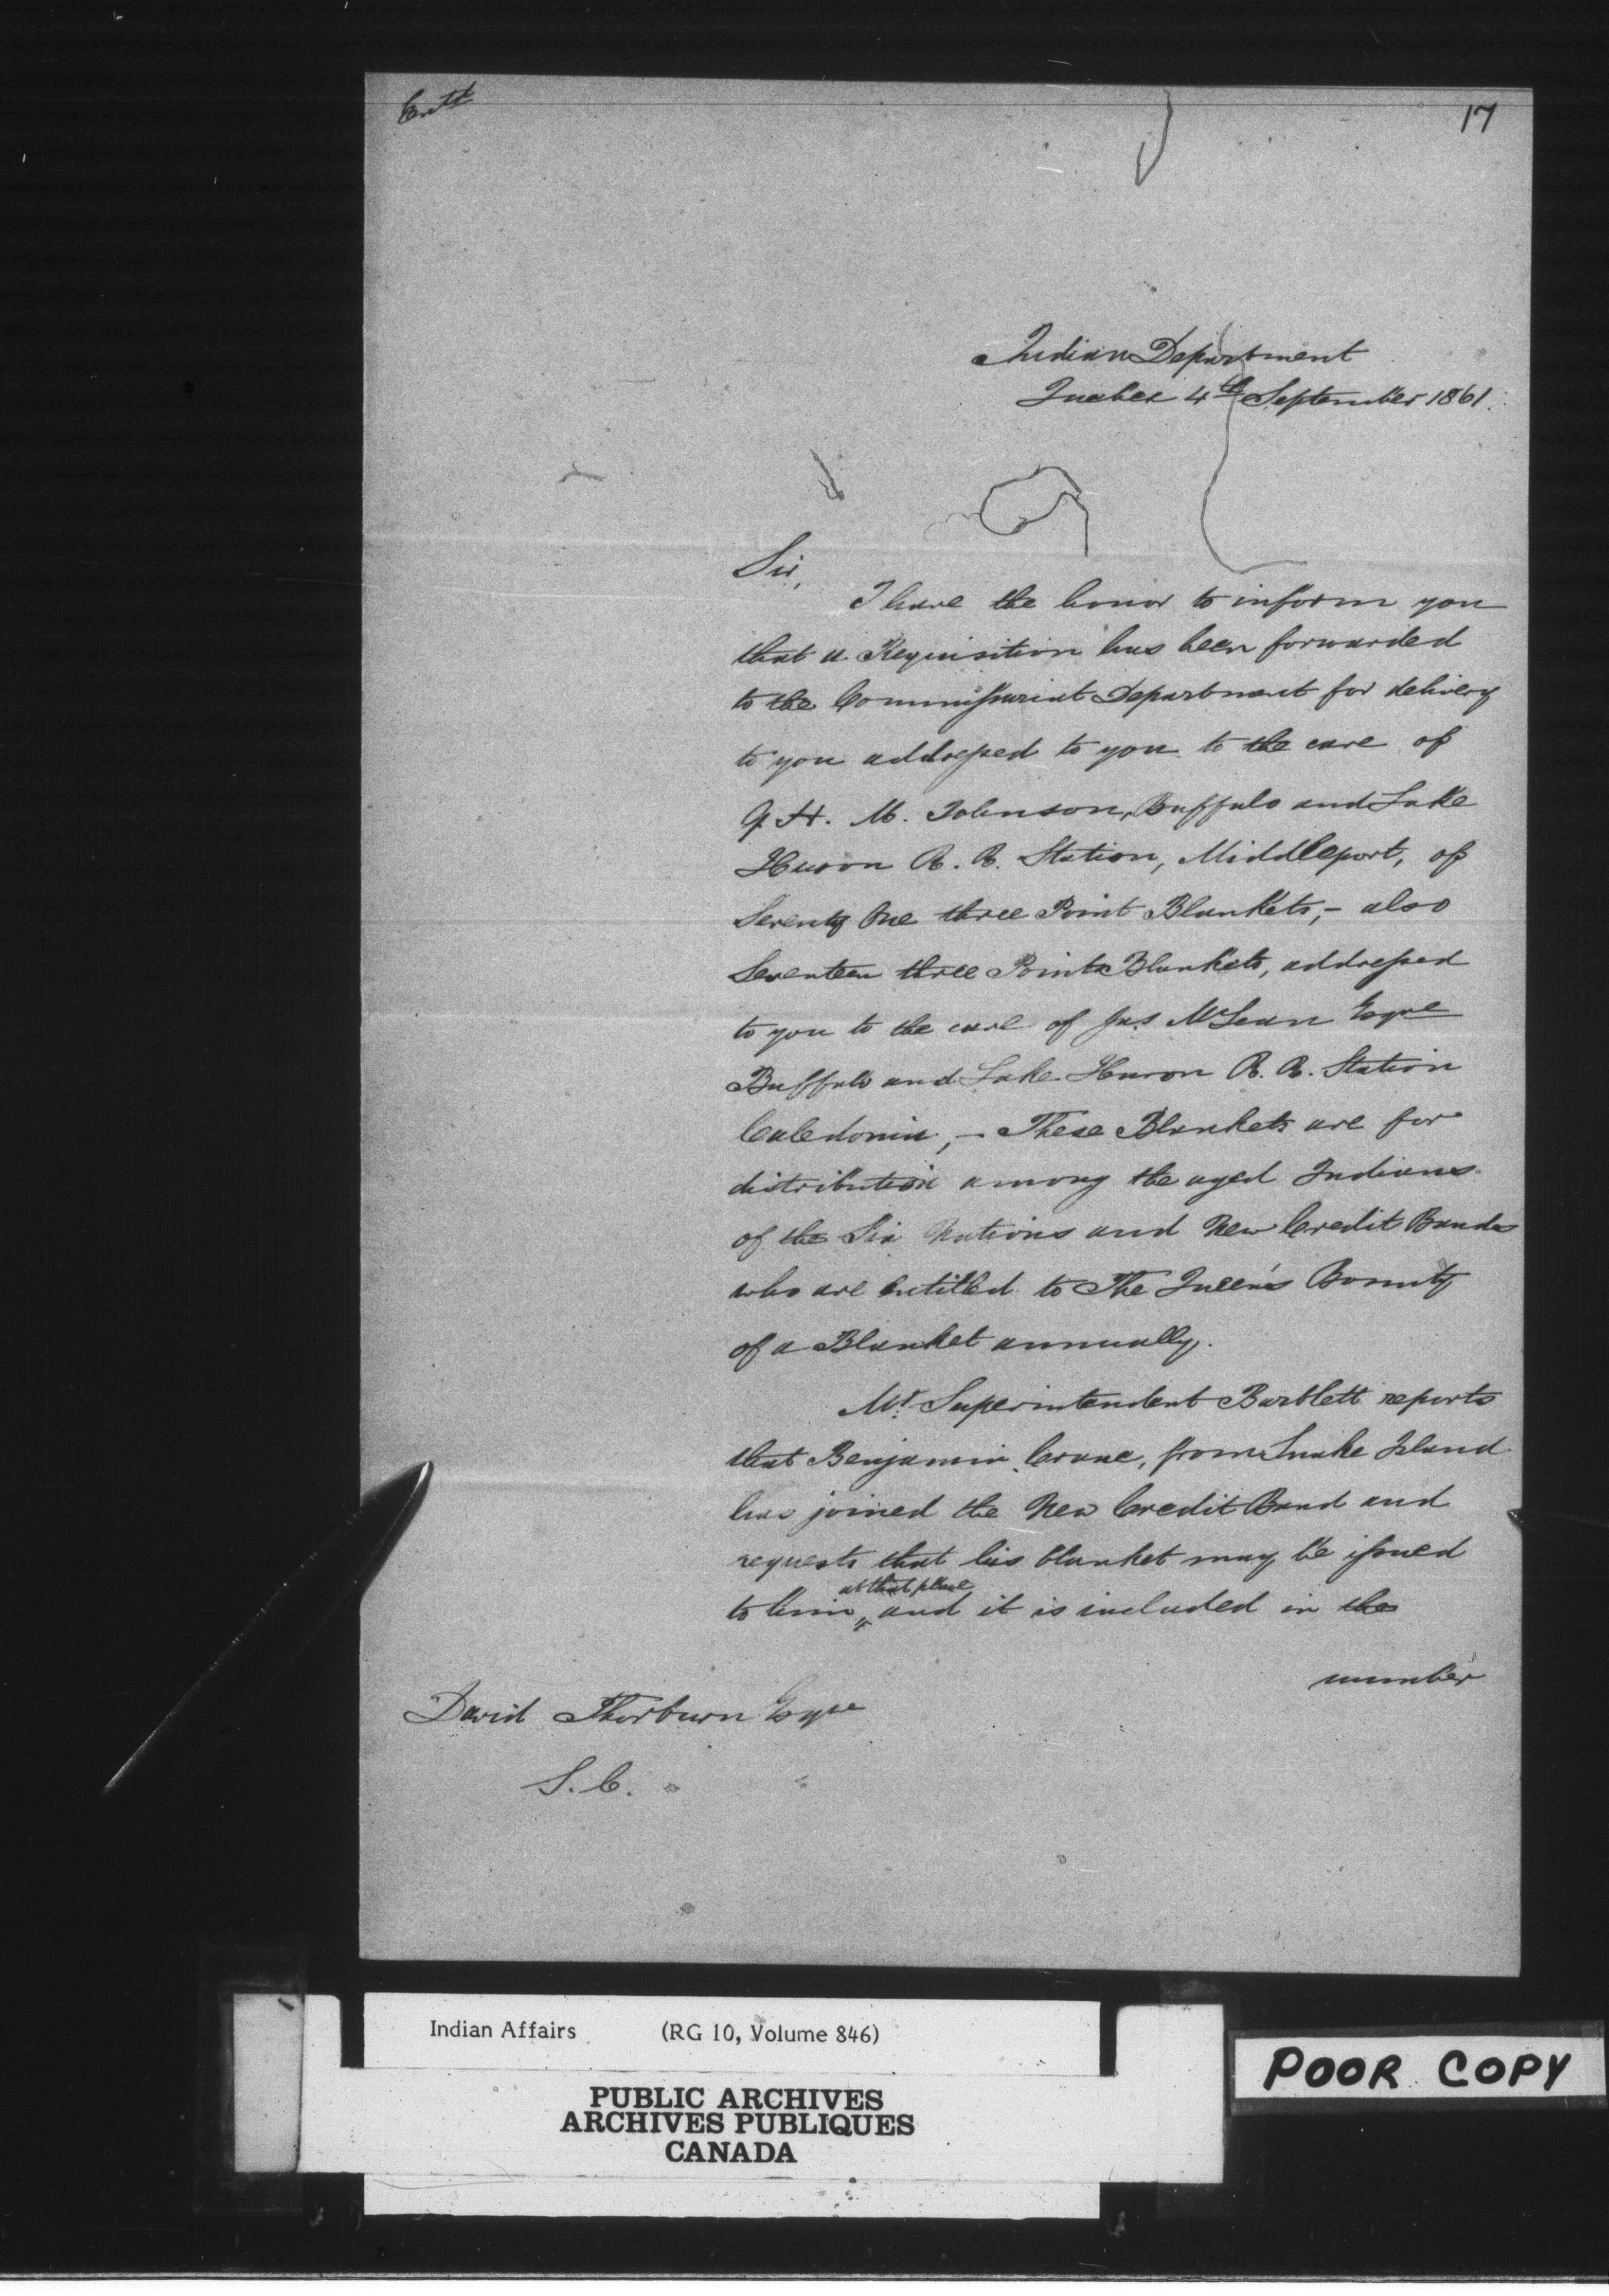 Entd
17
Indian Department
Quebec 4th September 1861.
Sir,
I have the honor to inform you
that a Requisition has been forwarded
to the Commissariat Department for delivery
to you addressed to you to the care of
G. H. M. Johnson, Buffalo and Lake
Huron R. R. Station, Middleport, of
Seventy One three Point Blankets, - also
Seventeen three Point Blankets, addressed
to you to the care of Jas McLean Esqre
Buffalo and Lake Huron R. R. Station
Caledonia, - These Blankets are for
distribution among the aged Indians
of the Six Nations and New Credit Bands
who are entitled to The Queen's Bounty
of a Blanket annually.
Mr. Superintendent Bartlett reports
that Benjamin Crane, from Snake Island
has joined the New Credit Band and
requests that his blanket may be issued
at that place
to him, and it is included in the
number
David Thorburn Esqre
S. C.
Indian Affairs (RG 10, Volume 846)
PUBLIC ARCHIVES
ARCHIVES PUBLIQUES
CANADA
POOR COPY